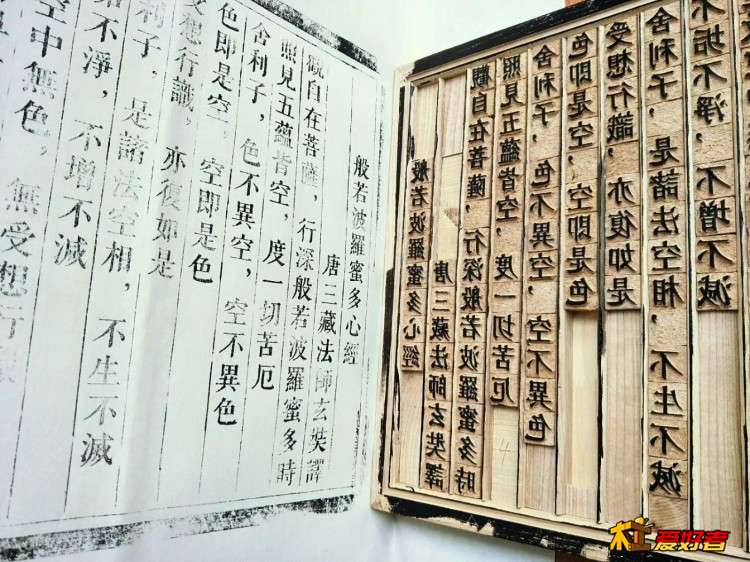 般若波羅蜜多心經
唐三藏法師玄奘譯
觀自在菩薩，行深般若波羅蜜多時
照見五蘊皆空，度一切苦厄
舍利子，色不異空，空不異色
色即是空，空即是色
受想行識，亦復如是
利子，是諸法空相，不生不滅
垢不淨，不增不滅
空中無色，無受想行
般若波羅蜜多心經
唐三藏法師玄奘譯
觀自在菩薩，行深般若波羅蜜多時
照見五蘊皆空，度一切苦厄
舍利子，色不異空，空不異色
色即是空，空即是色
受想行識，亦復如是
舍利子，是諸法空相，不生不滅
不垢不淨，不增不滅
木工爱好者